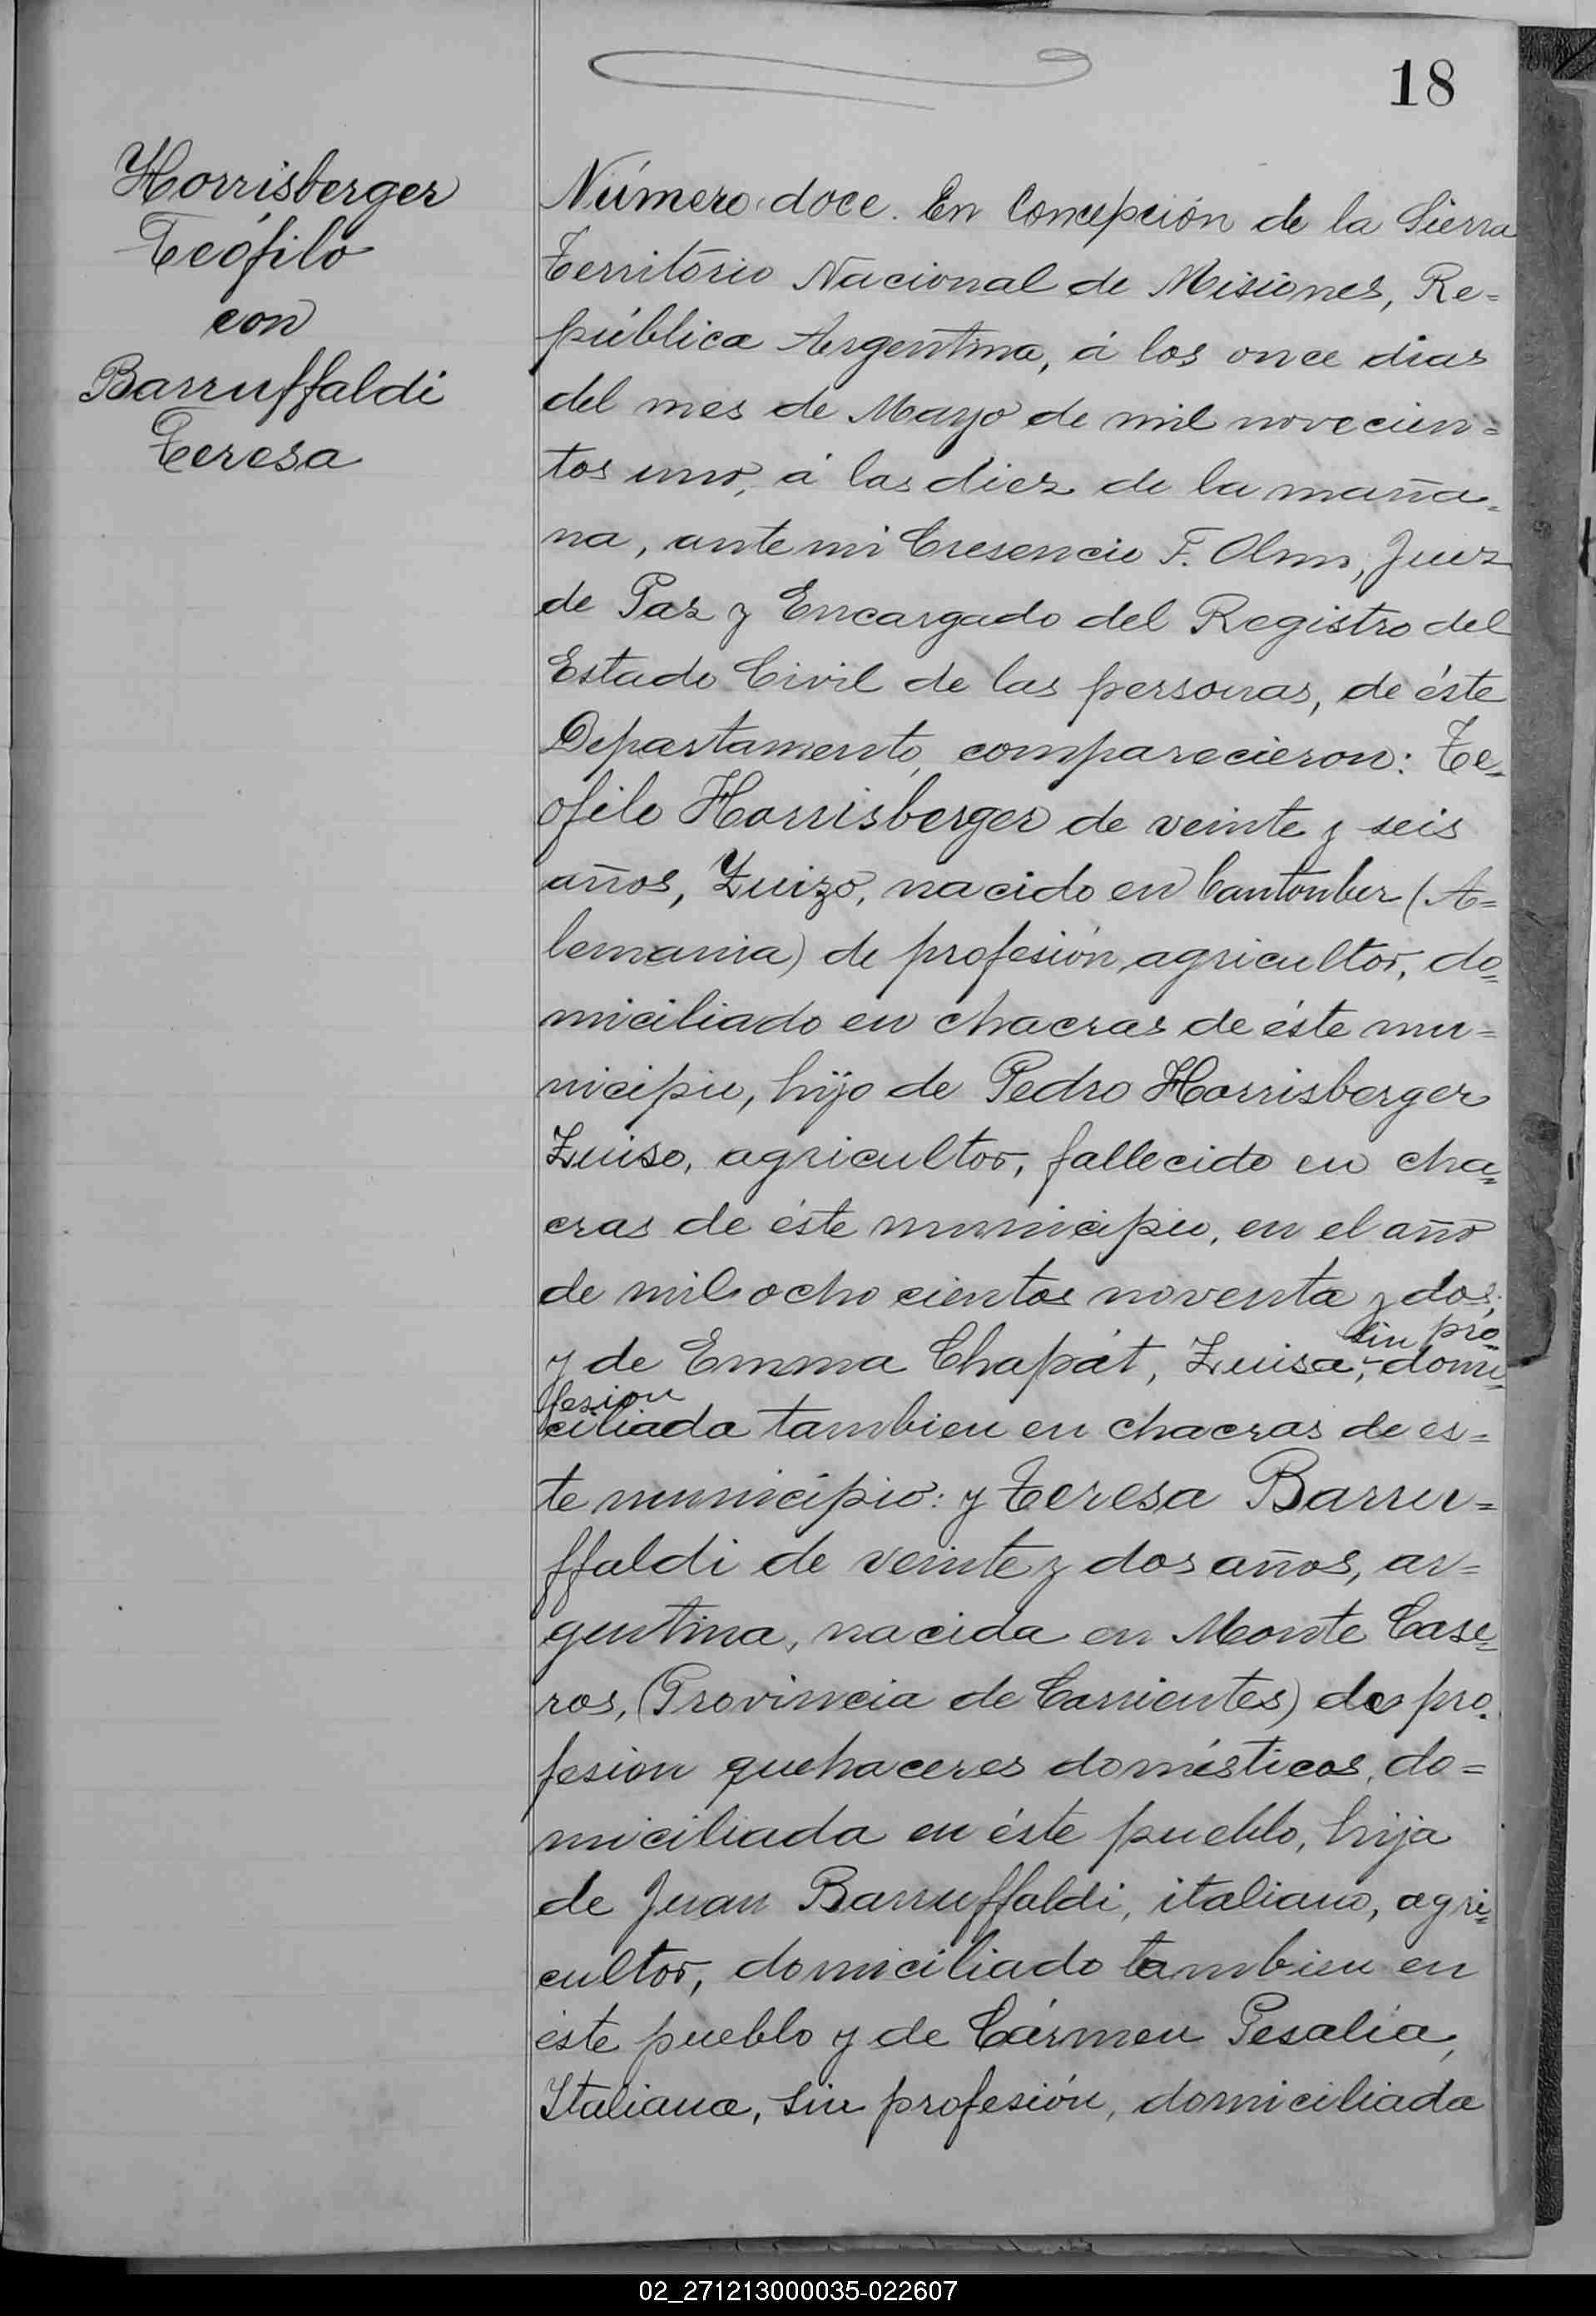 18
Horrisberger
Teófilo
con
Barruffaldi
Teresa
Número doce. En Concepción de la Sierra
Território Nacional de Misiones, Re=
pública Argentina, á los once dias
del mes de Mayo de mil novecien=
tos uno, á las diez de la maña=
na, ante mi Cresencio F. Olmo, Juez
de Paz y Encargado del Registro del
Estado Civil de las personas, de éste
Departamento, comparecieron: Te=
ofilo Horrisberger de veinte y seis
años, Zuizo, nacido en Cantonber (A=
lemania) de profesión agricultor, do=
miciliado en chacras de éste mu=
nicipio, hijo de Pedro Horrisberger
Zuiso, agricultor, fallecido en cha=
cras de éste municipio, en el año
de mil ocho cientos noventa y dos;
sin pro=
y de Emma Chapát, Zuisa, domi=
fesion
ciliada tambien en chacras de es=
te municipio: y Teresa Barru=
ffaldi de veinte y dos años, ar=
gentina, nacida en Monte Case=
ros, (Provincia de Corrientes) de pro=
fesion quehaceres domésticos, do=
miciliada en éste pueblo, hija
de Juan Barruffaldi, italiano, agri=
cultor, domiciliado tambien en
éste pueblo y de Cármen Pesalia,
Italiana, sin profesión, domiciliada
02_271213000035-022607